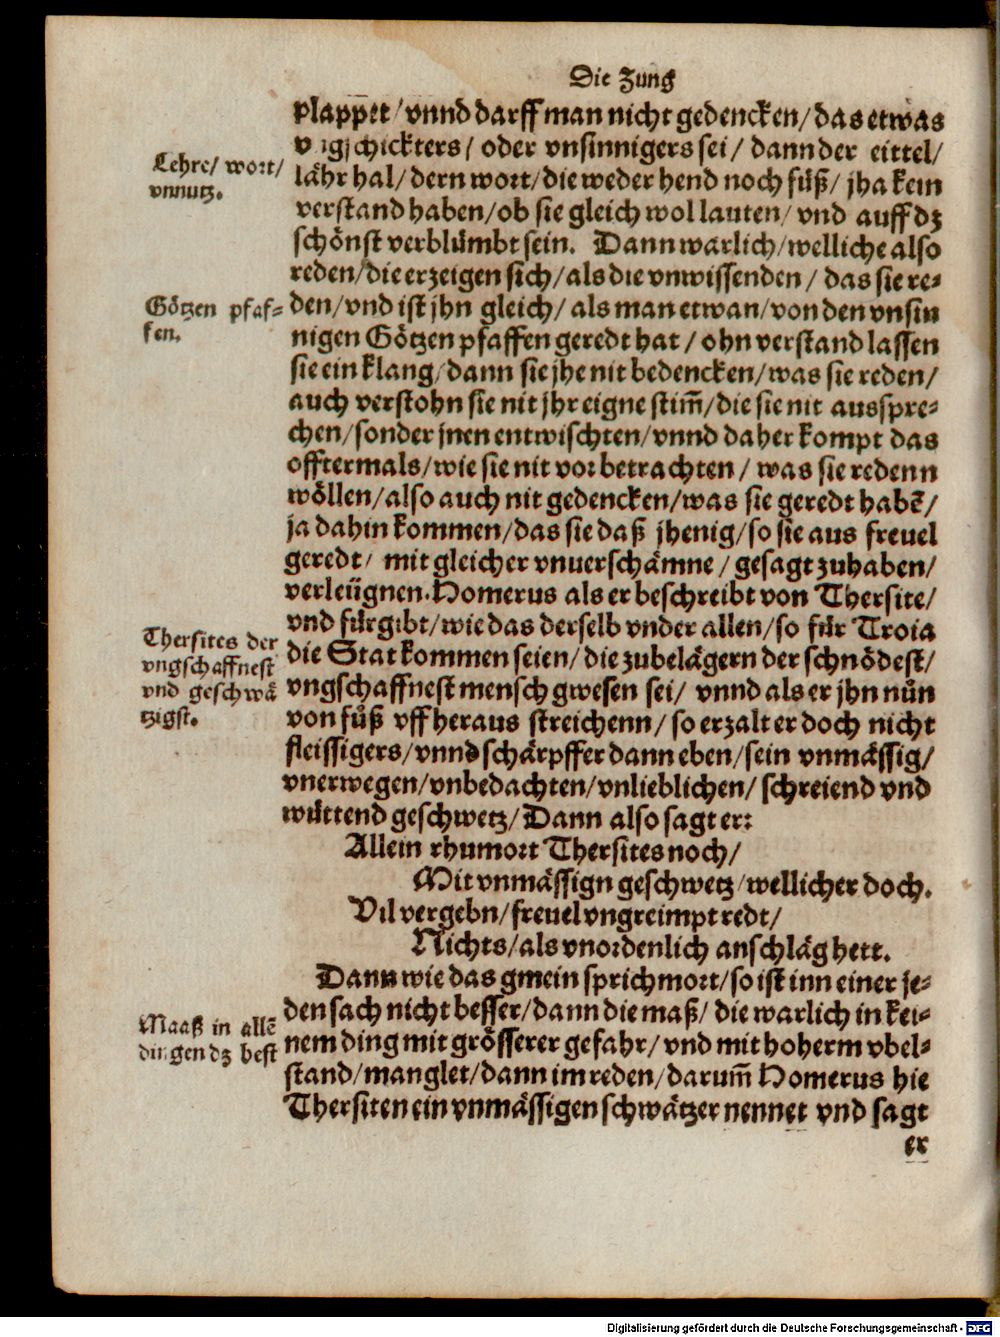 Die Zung
plappet / vnnd darff man nicht gedencken / das etwas
vngschickters / oder vnsinnigers sei / dann der eittel /
lähr hal / dern wort / die weder hend noch füß / jha kein
verstand haben / ob sie gleich wol lauten / vnd auff dz
schönst verblůmbt sein. Dann warlich / welliche also
reden / die erzeigen sich / als die vnwissenden / das sie re⸗
den / vnd ist jhn gleich / als man etwan / von den vnsin
nigen Götzen pfaffen geredt hat / ohn verstand lassen
sie ein klang / dann sie jhe nit bedencken / was sie reden /
auch verstohn sie nit jhr eigne stim̃ / die sie nit ausspre⸗
chen / sonder jnen entwischten / vnnd daher kompt das
offtermals / wie sie nit vor betrachten / was sie redenn
wöllen / also auch nit gedencken / was sie geredt habẽ /
ja dahin kommen / das sie daß jhenig / so sie aus freuel
geredt / mit gleicher vnuerschämne / gesagt zuhaben /
verleügnen. Homerus als er beschreibt von Thersite /
vnd fürgibt / wie das derselb vnder allen / so für Troia
die Stat kommen seien / die zubelägern der schnödest /
vngschaffnest mensch gwesen sei / vnnd als er jhn nůn
von fůß vff heraus streichenn / so erzalt er doch nicht
fleissigers / vnnd schärpffer dann eben / sein vnmässig /
vnerwegen / vnbedachten / vnlieblichen / schreiend vnd
wüttend geschwetz / Dann also sagt er:
Allein rhumort Thersites noch /
Mit vnmässign geschwetz / wellicher doch.
Vil vergebn / freuel vngreimpt redt /
Nichts / als vnordenlich anschläg hett.
Dann wie das gmein sprichmort / so ist inn einer je⸗
den sach nicht besser / dann die maß / die warlich in kei⸗
nem ding mit grösserer gefahr / vnd mit hoherm vbel⸗
stand / manglet / dann im reden / darum̃ Homerus hie
Thersiten ein vnmässigen schwätzer nennet vnd sagt
er
Lehre / wort /
vnnutz.
Götzen pfaf⸗
fen.
Thersites der
vngschaffnest
vnd geschwä
tzigst.
Maaß in allẽ
dingen dz best
Digitalisierung gefördert durch die Deutsche Forschungsgemeinschaft - DFG